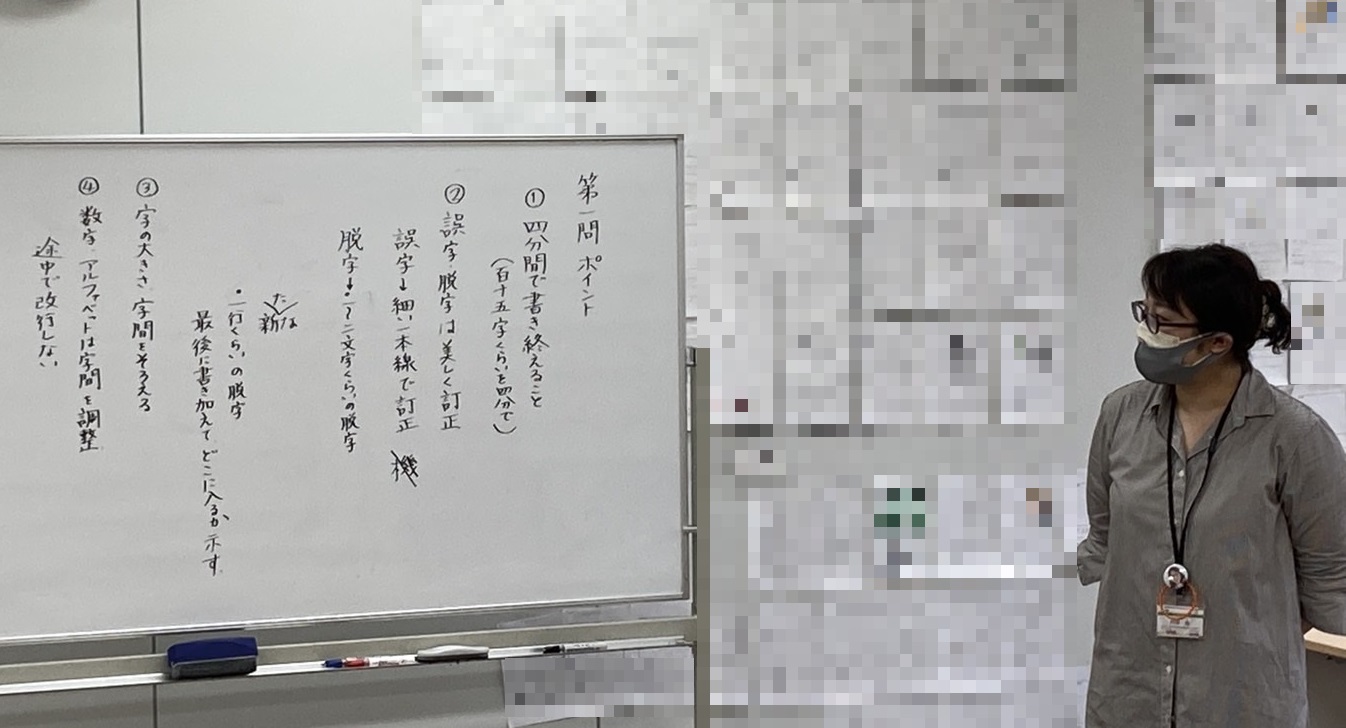 第一問 ポイント
① 四分間で書き終えること
(百十五字くらいを四分で)
② 誤字・脱字は美しく訂正
誤字→細い一本線で訂正 機
脱字→・一～二文字くらいの脱字
た
新な
・一行くらいの脱字
最後に書き加えて、どこに入るか示す
③ 字の大きさ、字間をそろえる
④ 数字、アルファベットは字間を調整
途中で改行しない